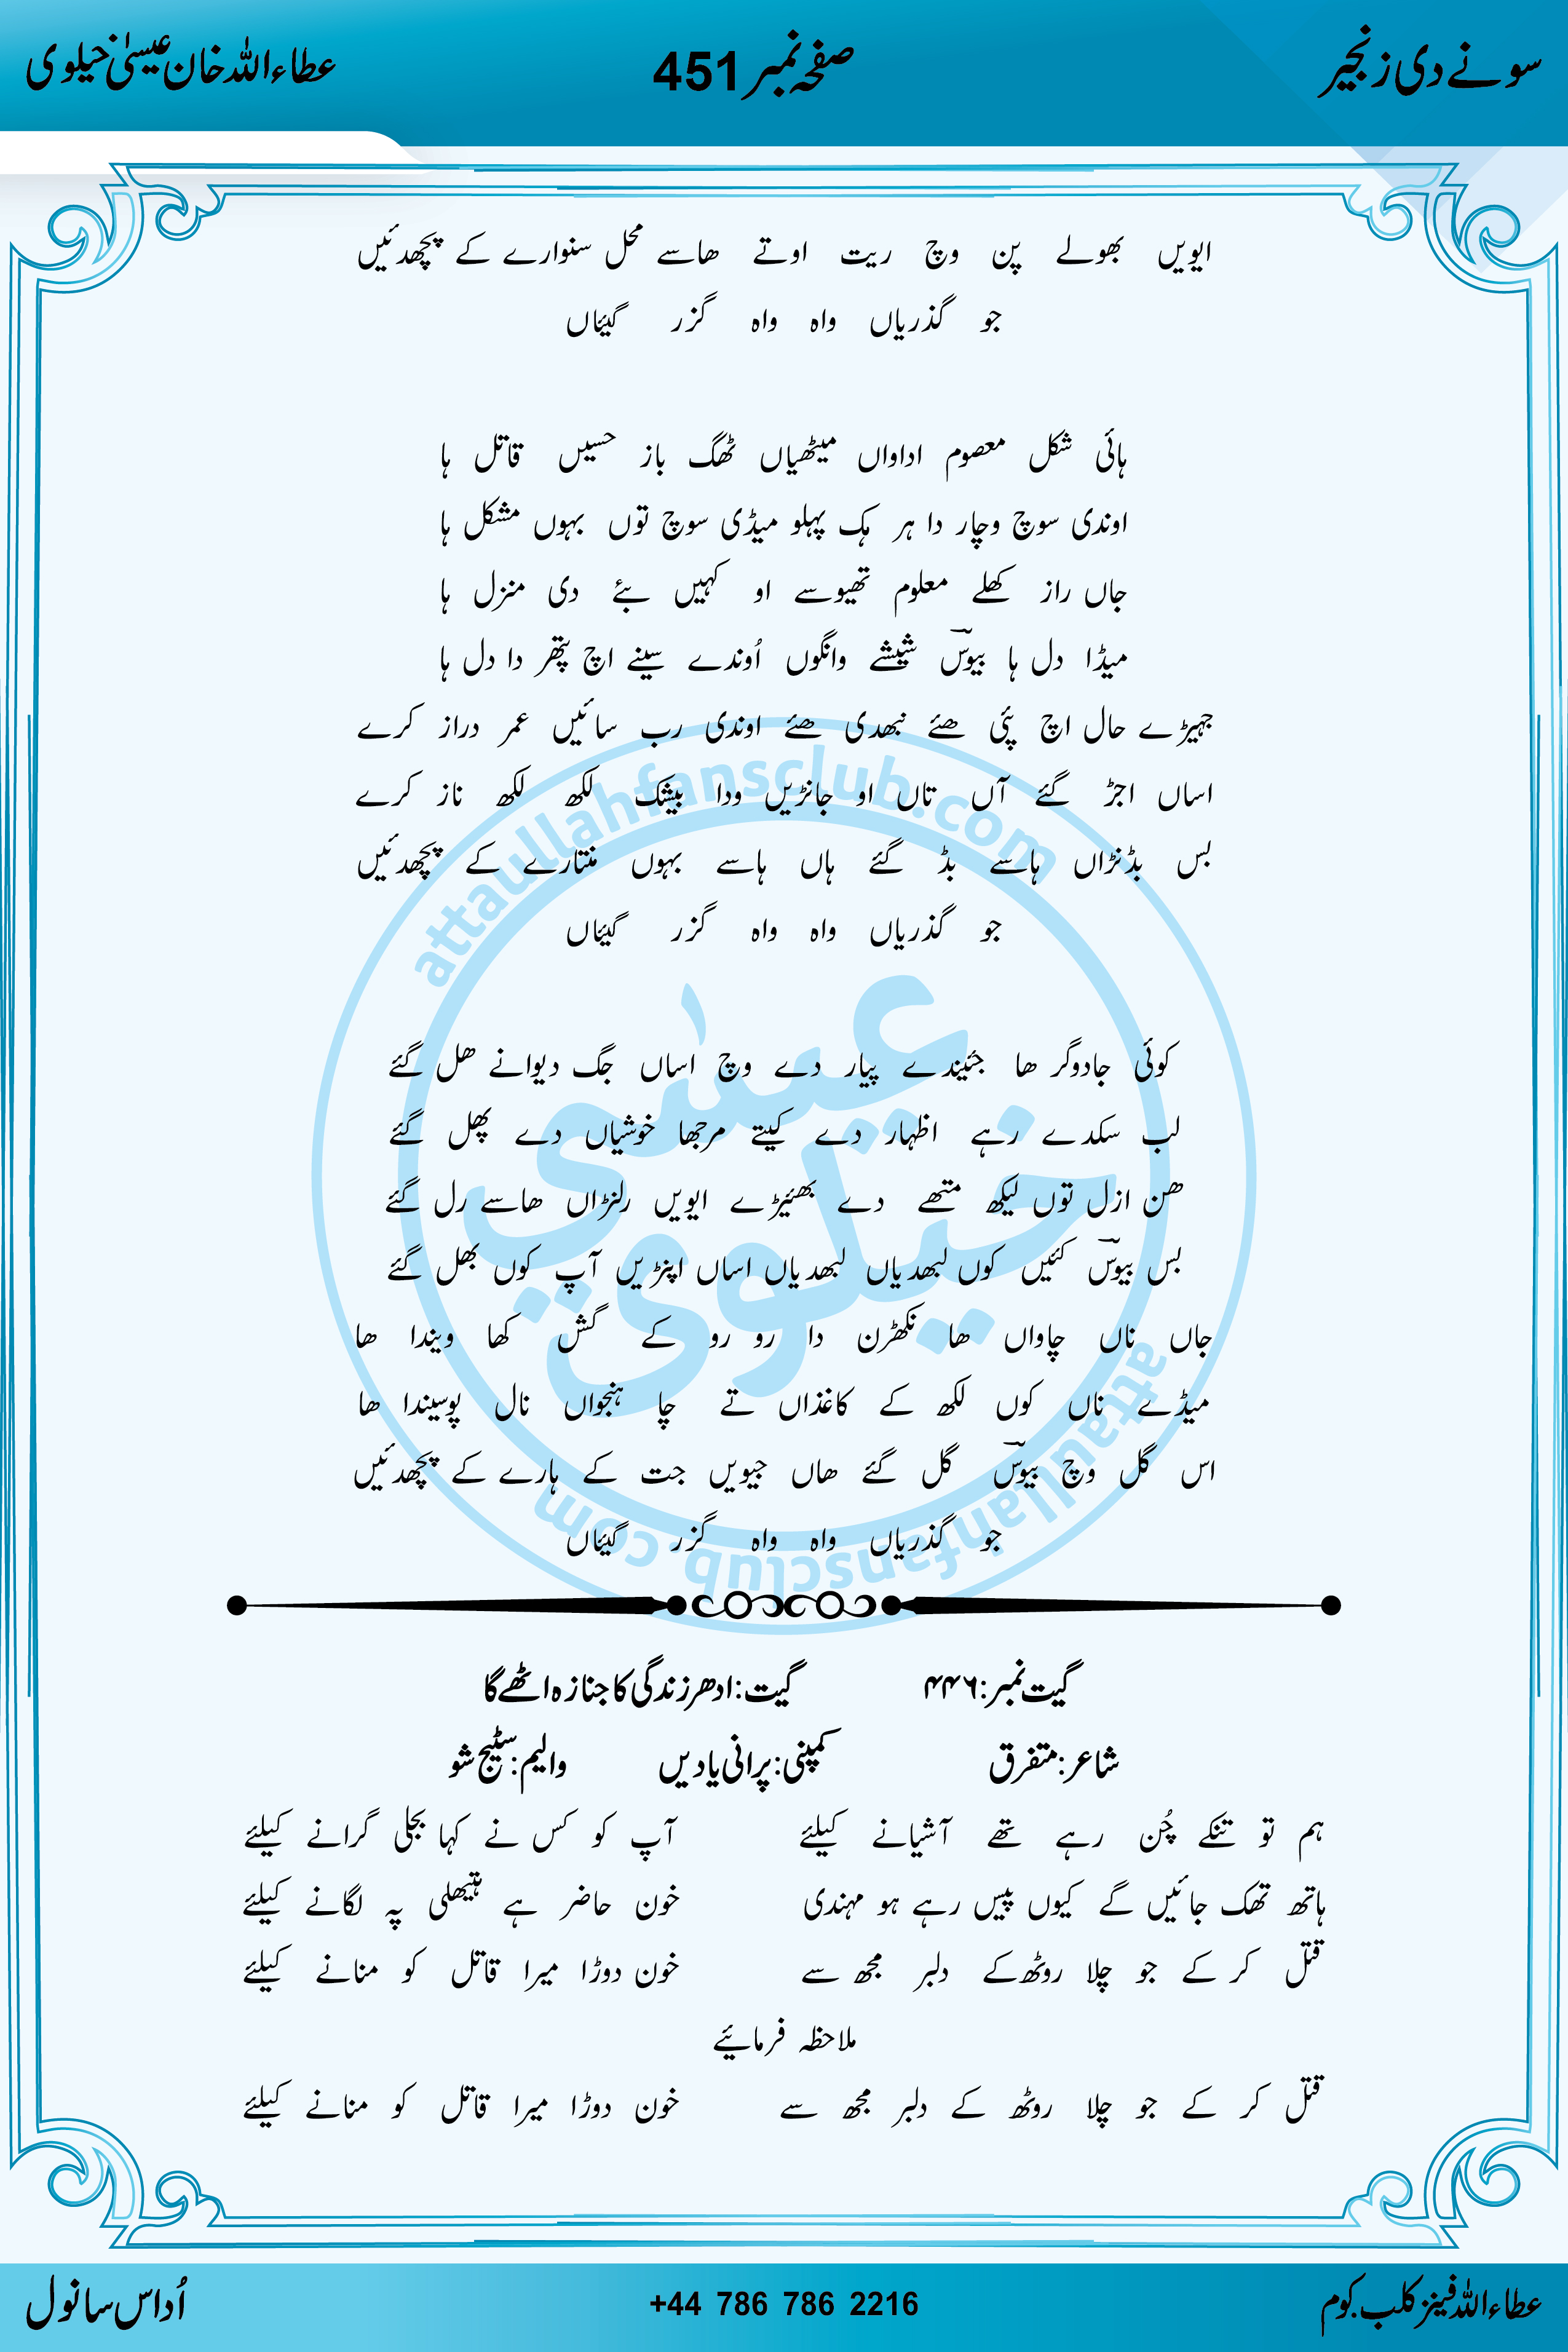 سونے دی زنجیر صفحہ نمبر 451 عطاء اللہ خان عیسیٰ خیلوی
ایویں بھولے پن وچ ریت اوتے ھاسے محل سنوارے کے پچھدئیں
جو گذریاں واہ واہ گزر گیئاں
ہائی شکل معصوم اداواں میٹھیاں ٹھگ باز حسیں قاتل ہا
اوندی سوچ وچار دا ہر ہک پہلو میڈی سوچ توں بہوں مشکل ہا
جاں راز کھلے معلوم تھیوسے او کہیں بئے دی منزل ہا
میڈا دل ہا بیوسؔ شیشے وانگوں اُوندے سینے اچ پتھر دا دل ہا
جہیڑے حال اچ پئی ھئے نبھدی ھئے اوندی رب سائیں عمر دراز کرے
اساں اجڑ گئے آں تاں او جانڑیں ودا بیشک لکھ لکھ ناز کرے
بس بڈنڑاں ہاسے بڈ گئے ہاں ہاسے بہوں منتارے کے پچھدئیں
جو گذریاں واہ واہ گزر گیئاں
کوئی جادوگر ھا جئیندے پیار دے وچ اساں جگ دیوانے ھل گئے
لب سکدے رہے اظہار دے کیتے مرجھا خوشیاں دے پھل گئے
ھن ازل توں لیکھ متھے دے بھئیڑے ایویں رلنڑاں ھاسے رل گئے
بس بیوسؔ کئیں کوں لبھدیاں لبھدیاں اساں اپنڑیں آپ کوں بھل گئے
جاں ناں چاواں ھا نکھڑن دا رو رو کے گش کھا ویندا ھا
میڈے ناں کوں لکھ کے کاغذاں تے چا ہنجواں نال پوسیندا ھا
اس گل وچ بیوسؔ گل گئے ھاں جیویں جت کے ہارے کے پچھدئیں
جو گذریاں واہ واہ گزر گیئاں
گیت نمبر: ۴۴۶ گیت: ادھر زندگی کا جنازہ اٹھے گا
شاعر: متفرق کمپنی: پرانی یادیں والیم: سٹیج شو
ہم تو تنکے چُن رہے تھے آشیانے کیلئے آپ کو کس نے کہا بجلی گرانے کیلئے
ہاتھ تھک جائیں گے کیوں پیس رہے ہو مہندی خون حاضر ہے ہتیھلی پہ لگانے کیلئے
قتل کر کے جو چلا روٹھ کے دلبر مجھ سے خون دوڑا میرا قاتل کو منانے کیلئے
ملاحظہ فرمائیے
قتل کر کے جو چلا روٹھ کے دلبر مجھ سے خون دوڑا میرا قاتل کو منانے کیلئے
attaullahfansclub.com
عیسیٰ خیلوی
attaullahfansclub.com
عطاء اللہ فینز کلب.کوم +44 786 786 2216 اُداس سانول